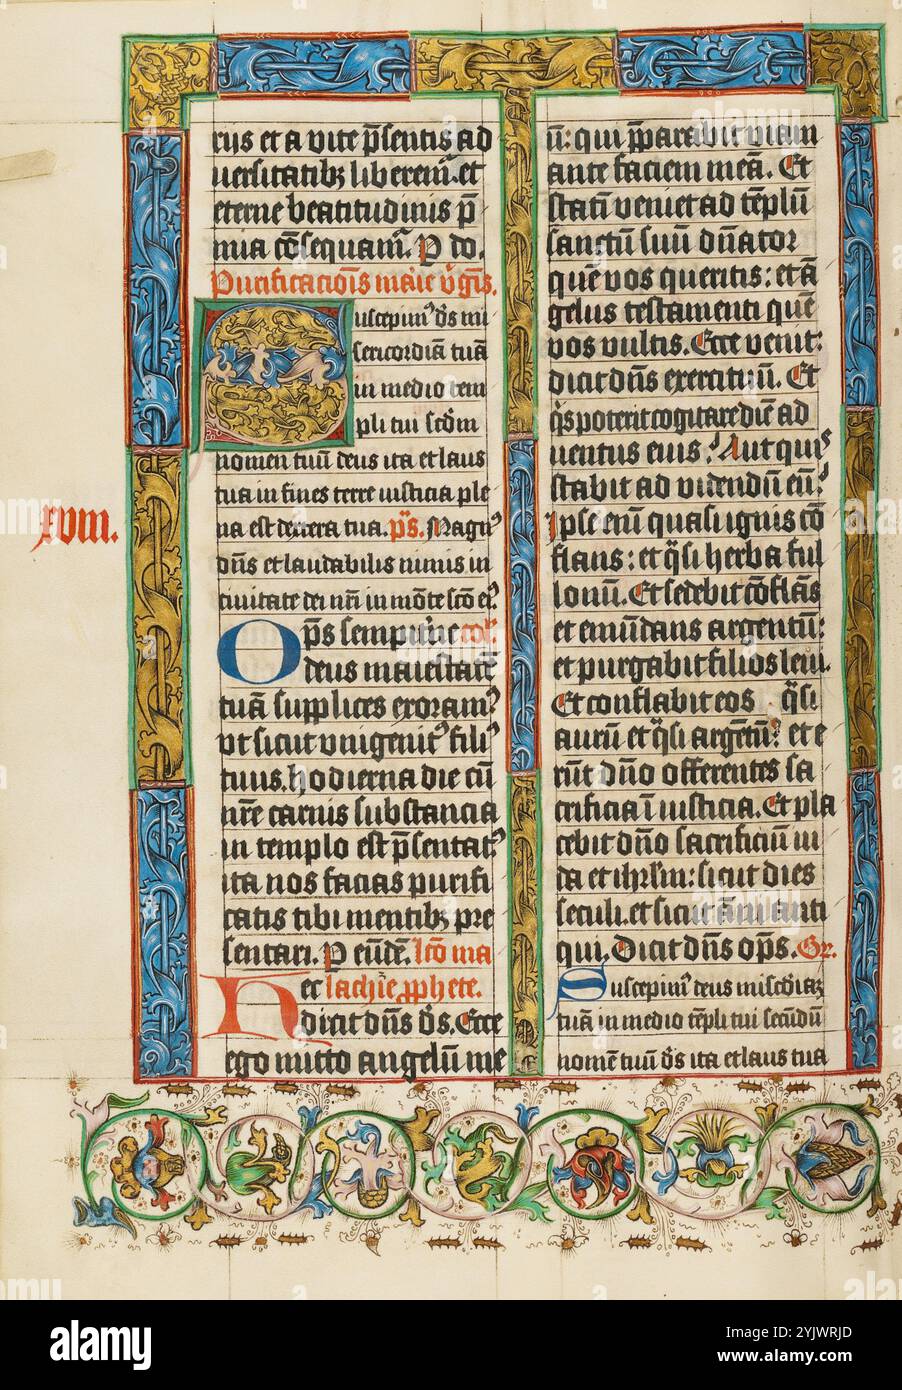 riis et a vite p̄sentis ad
uersitatibȝ liberemͬ. et
eterne beatitudinis p̄
mia cōsequamͬ. P do.
Purificaciōis marie v̓gīs.
Suscepimꝰ ds̄ mi
sericordiā tuā
in medio tem
pli tui scd̄m
nomen tuū deus ita et laus
tua in fines terre iusticia ple
na est dextera tua. p̄s. Magnꝰ
dn̄s et laudabilis nimis in
ciuitate dei nr̄i in mōte scō eiꝰ.
xviii.
Op̄s sempit̓ne col̓.
deus maiestatē
tuā supplices exoramꝰ
vt sicut vnigenitꝰ filiꝰ
tuus. hodierna die cū
nr̄e carnis substancia
in templo est p̄sentatꝰ
ita nos facias purifi
catis tibi mentibȝ pre
sentari. P eūdē. lc̄o ma
Hec lachie ꝓphete.
dicit dn̄s ds̄. Ecce
ego mitto angelū me
ū: qui p̄parabit viam
ante faciem meā. Et
statī veniet ad tēplū
sanctū suū dn̄ator
quē vos queritis: et ā
gelus testamenti quē
vos vultis. Ecce venit:
dicit dn̄s exercituū. Et
qͥs poterit cogitare diē ad
uentus eius? Aut quis
stabit ad videndū eū?
Ipse enī quasi ignis cō
flans: et qͣsi herba ful
lonū. Et sedebit cōflās
et emūdans argentū:
et purgabit filios leui.
Et conflabit eos qͣsi
aurū et qͣsi argētū: et e
rūt dn̄o offerentes sa
crificia ī iusticia. Et pla
cebit dn̄o sacrificiū iu
da et ihrl̄m: sicut dies
seculi. et sicut āni anti
qui. Dicit dn̄s op̄s. Gr.
Suscepimꝰ deus mīscd̓iaȝ
tuā in medio tēpli tui secūdū
nomē tuū ds̄ ita et laus tua
alamy
Image ID: 2YJWRJD
www.alamy.com